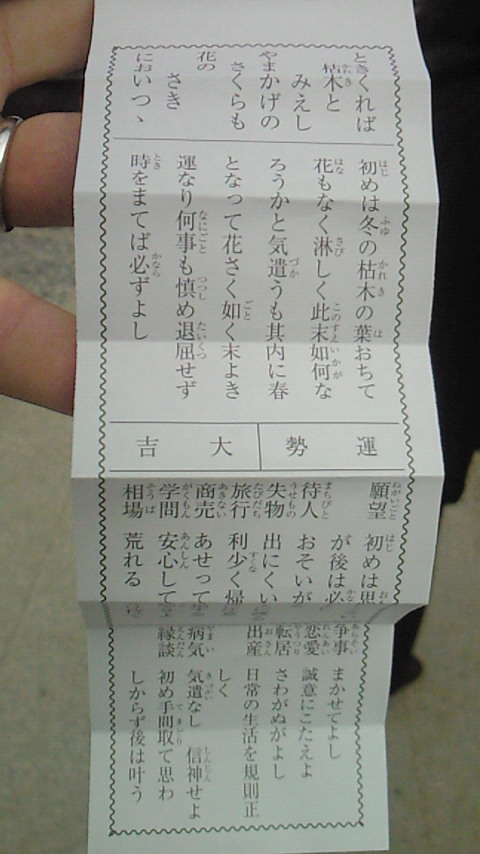 ときくれば
枯木と
みえし
やまかげの
さくらも
花の
さき
においつゝ
初めは冬の枯木の葉おちて
花もなく淋しく此末如何な
ろうかと気遣うも其内に春
となって花さく如く末よき
運なり何事も慎め退屈せず
時をまてば必ずよし
運勢
大吉
願望 初めは思
が後は必
待人 おそいが
失物 出にくい
旅行 利少く帰
商売 あせって
学問 安心して
相場 荒れる
争事 まかせてよし
恋愛 誠意にこたえよ
転居 さわがぬがよし
出産 日常の生活を規則正
しく
病気 気遣なし 信神せよ
縁談 初め手間取て思わ
しからず後は叶う